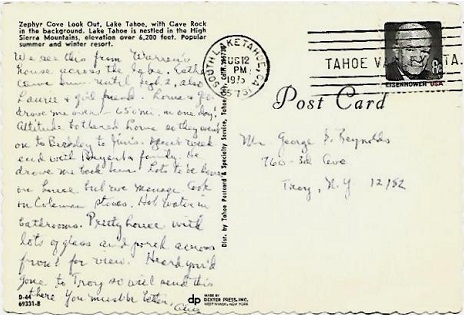 Zephyr Cove Look Out, Lake Tahoe, with Cave Rock
in the background. Lake Tahoe is nestled in the High
Sierra Mountains, elevation over 6,200 feet. Popular
summer and winter resort.
We see this from Warren's
house across the lake.
Came here until Sept 2, also
Laurie & girl friend.
drove me over - 650 mi in one day.
Altitude bothered Lorne so they went
on to Berkley to
end with & family. He
drove me back here. Lots to be done
on house but we manage. Cook
on Coleman stoves. Hot water in
bathrooms. Pretty house with
lots of glass and porch across
front for view. Heard you'd
gone to Troy so will send this
there. You must be better.
D-44
69331-B
Dist. by Tahoe Postcard & Specialty Service, Tahoe
dp
MADE BY
DEXTER PRESS, INC.
WEST NYACK, NEW YORK
SOUTH LAKE TAHOE, CA
AUG 12
PM
1975
95731
TAHOE
EISENHOWER USA
Post Card
Mr George J. Reynolds
Troy, N.Y 12182